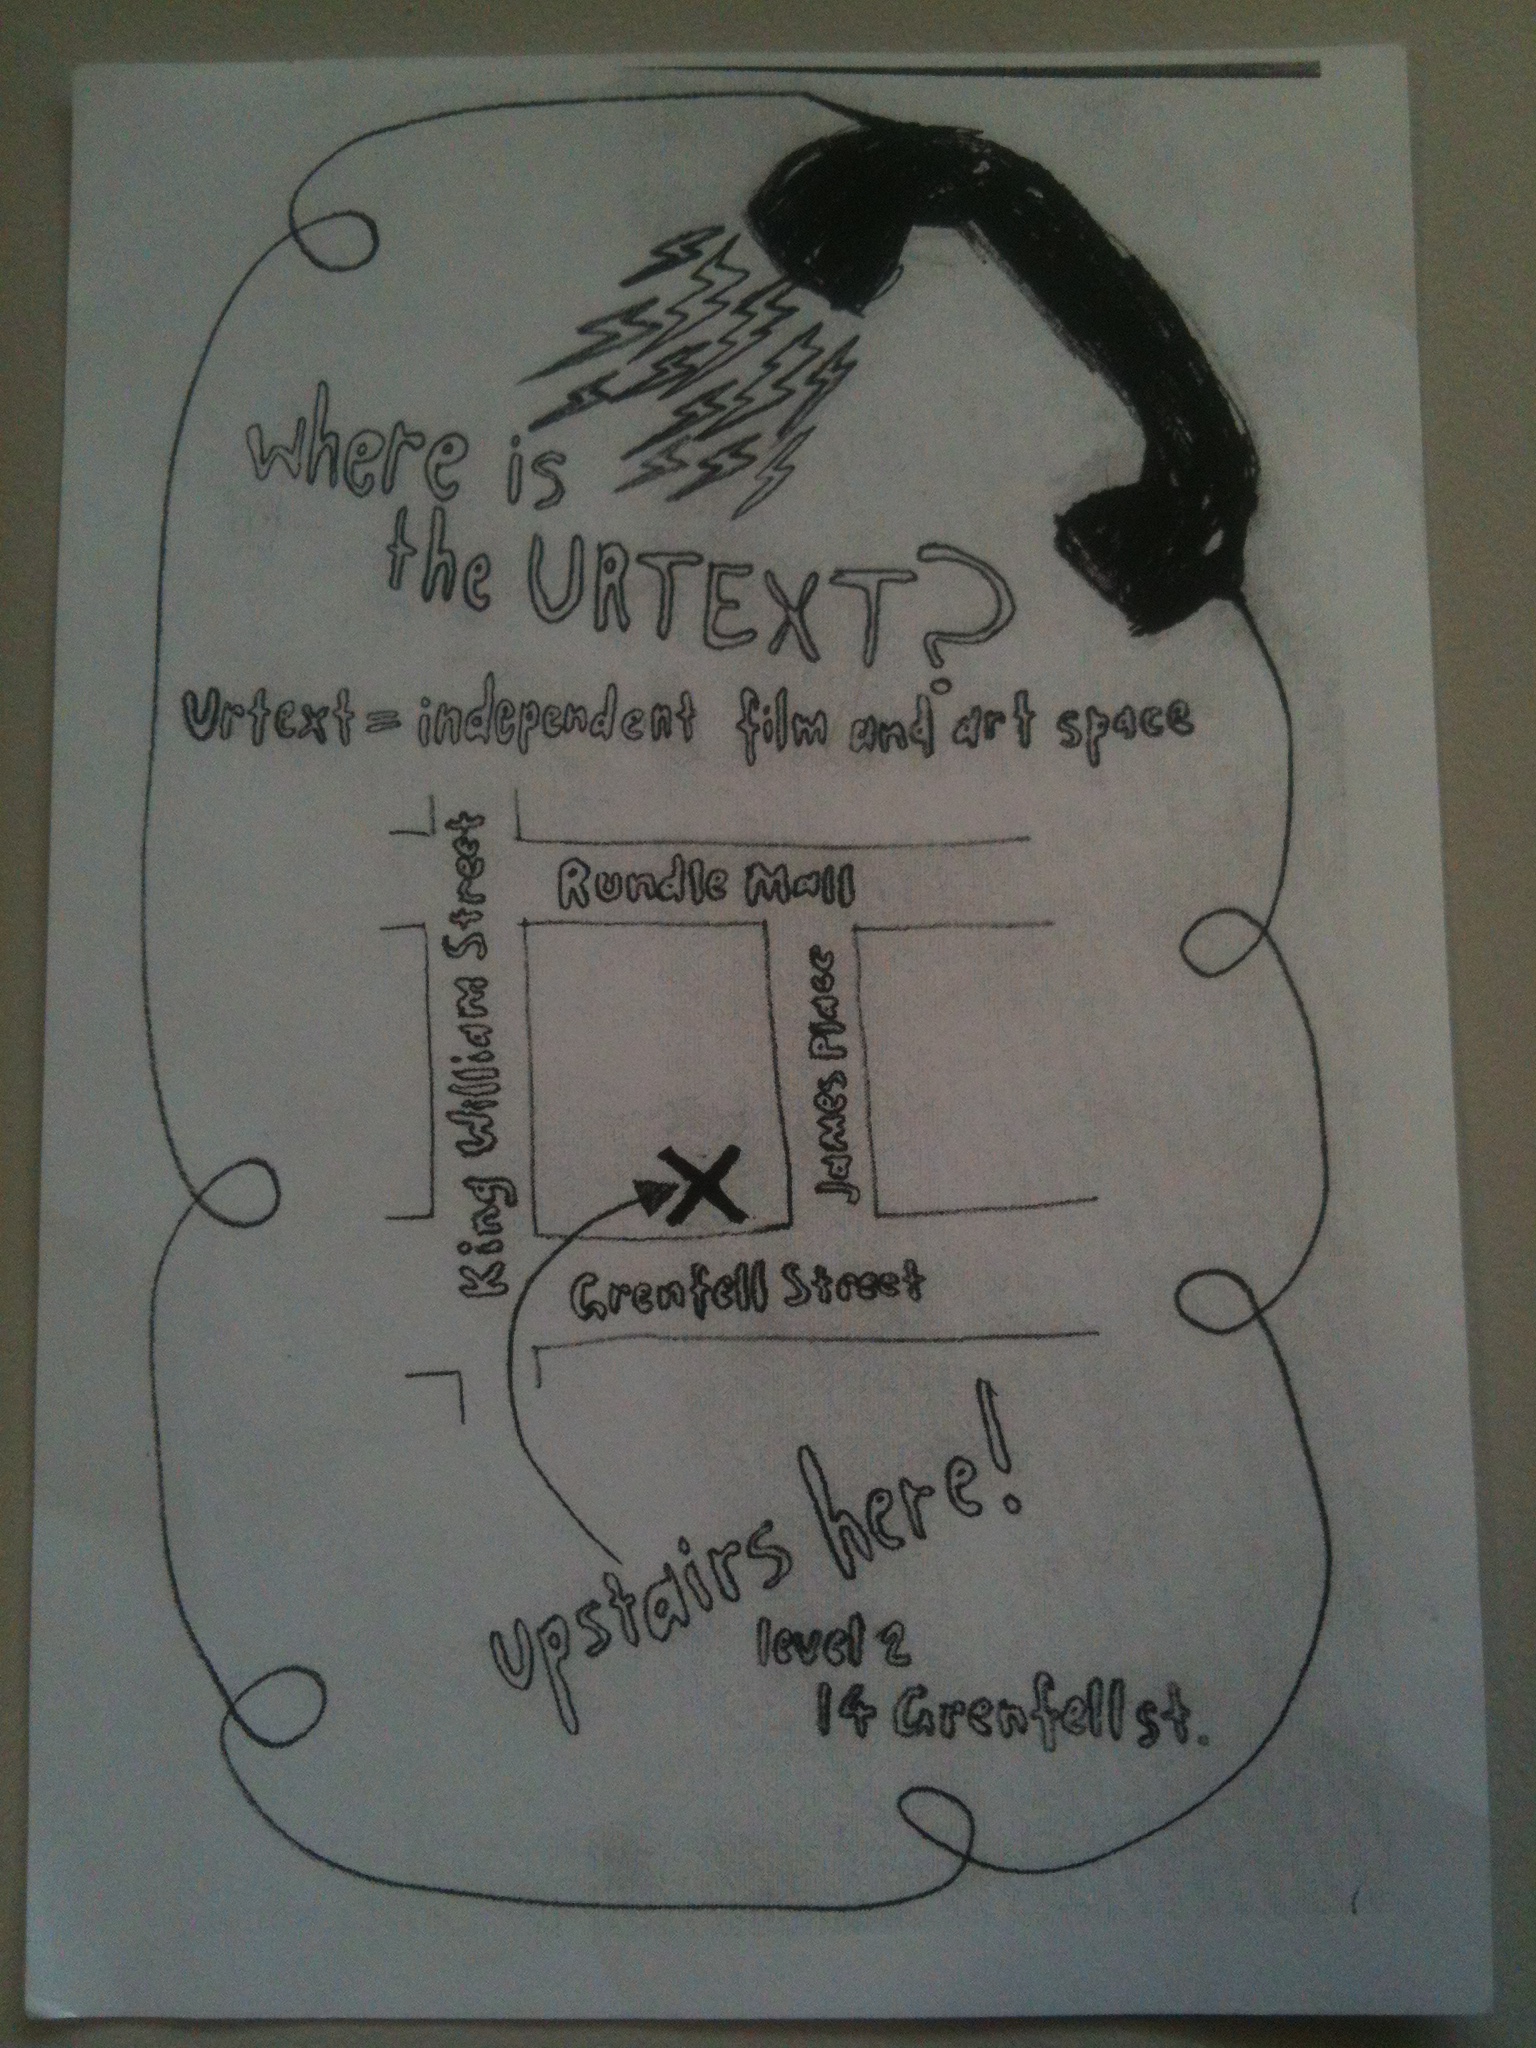 where is
the URTEXT?
Urtext = independent film and art space
Rundle Mall
King William Street
James Place
Grenfell Street
upstairs here!
level 2
14 Grenfell st.